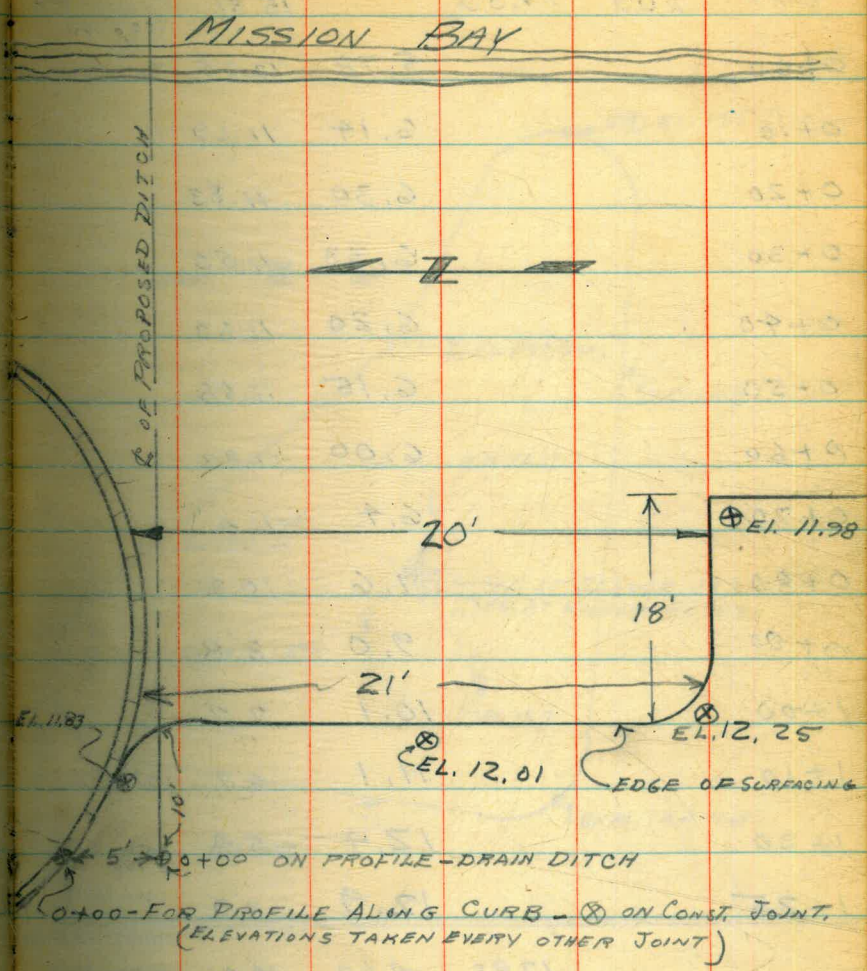 MISSION BAY
℄ OF PROPOSED DITCH
N
20'
EL. 11.98
18'
21'
EL. 11.83
EL. 12.25
EL. 12.01
EDGE OF SURFACING
10'
5'
0+00 ON PROFILE-DRAIN DITCH
0+00-FOR PROFILE ALONG CURB-⊗ ON CONST. JOINT.
(ELEVATIONS TAKEN EVERY OTHER JOINT)